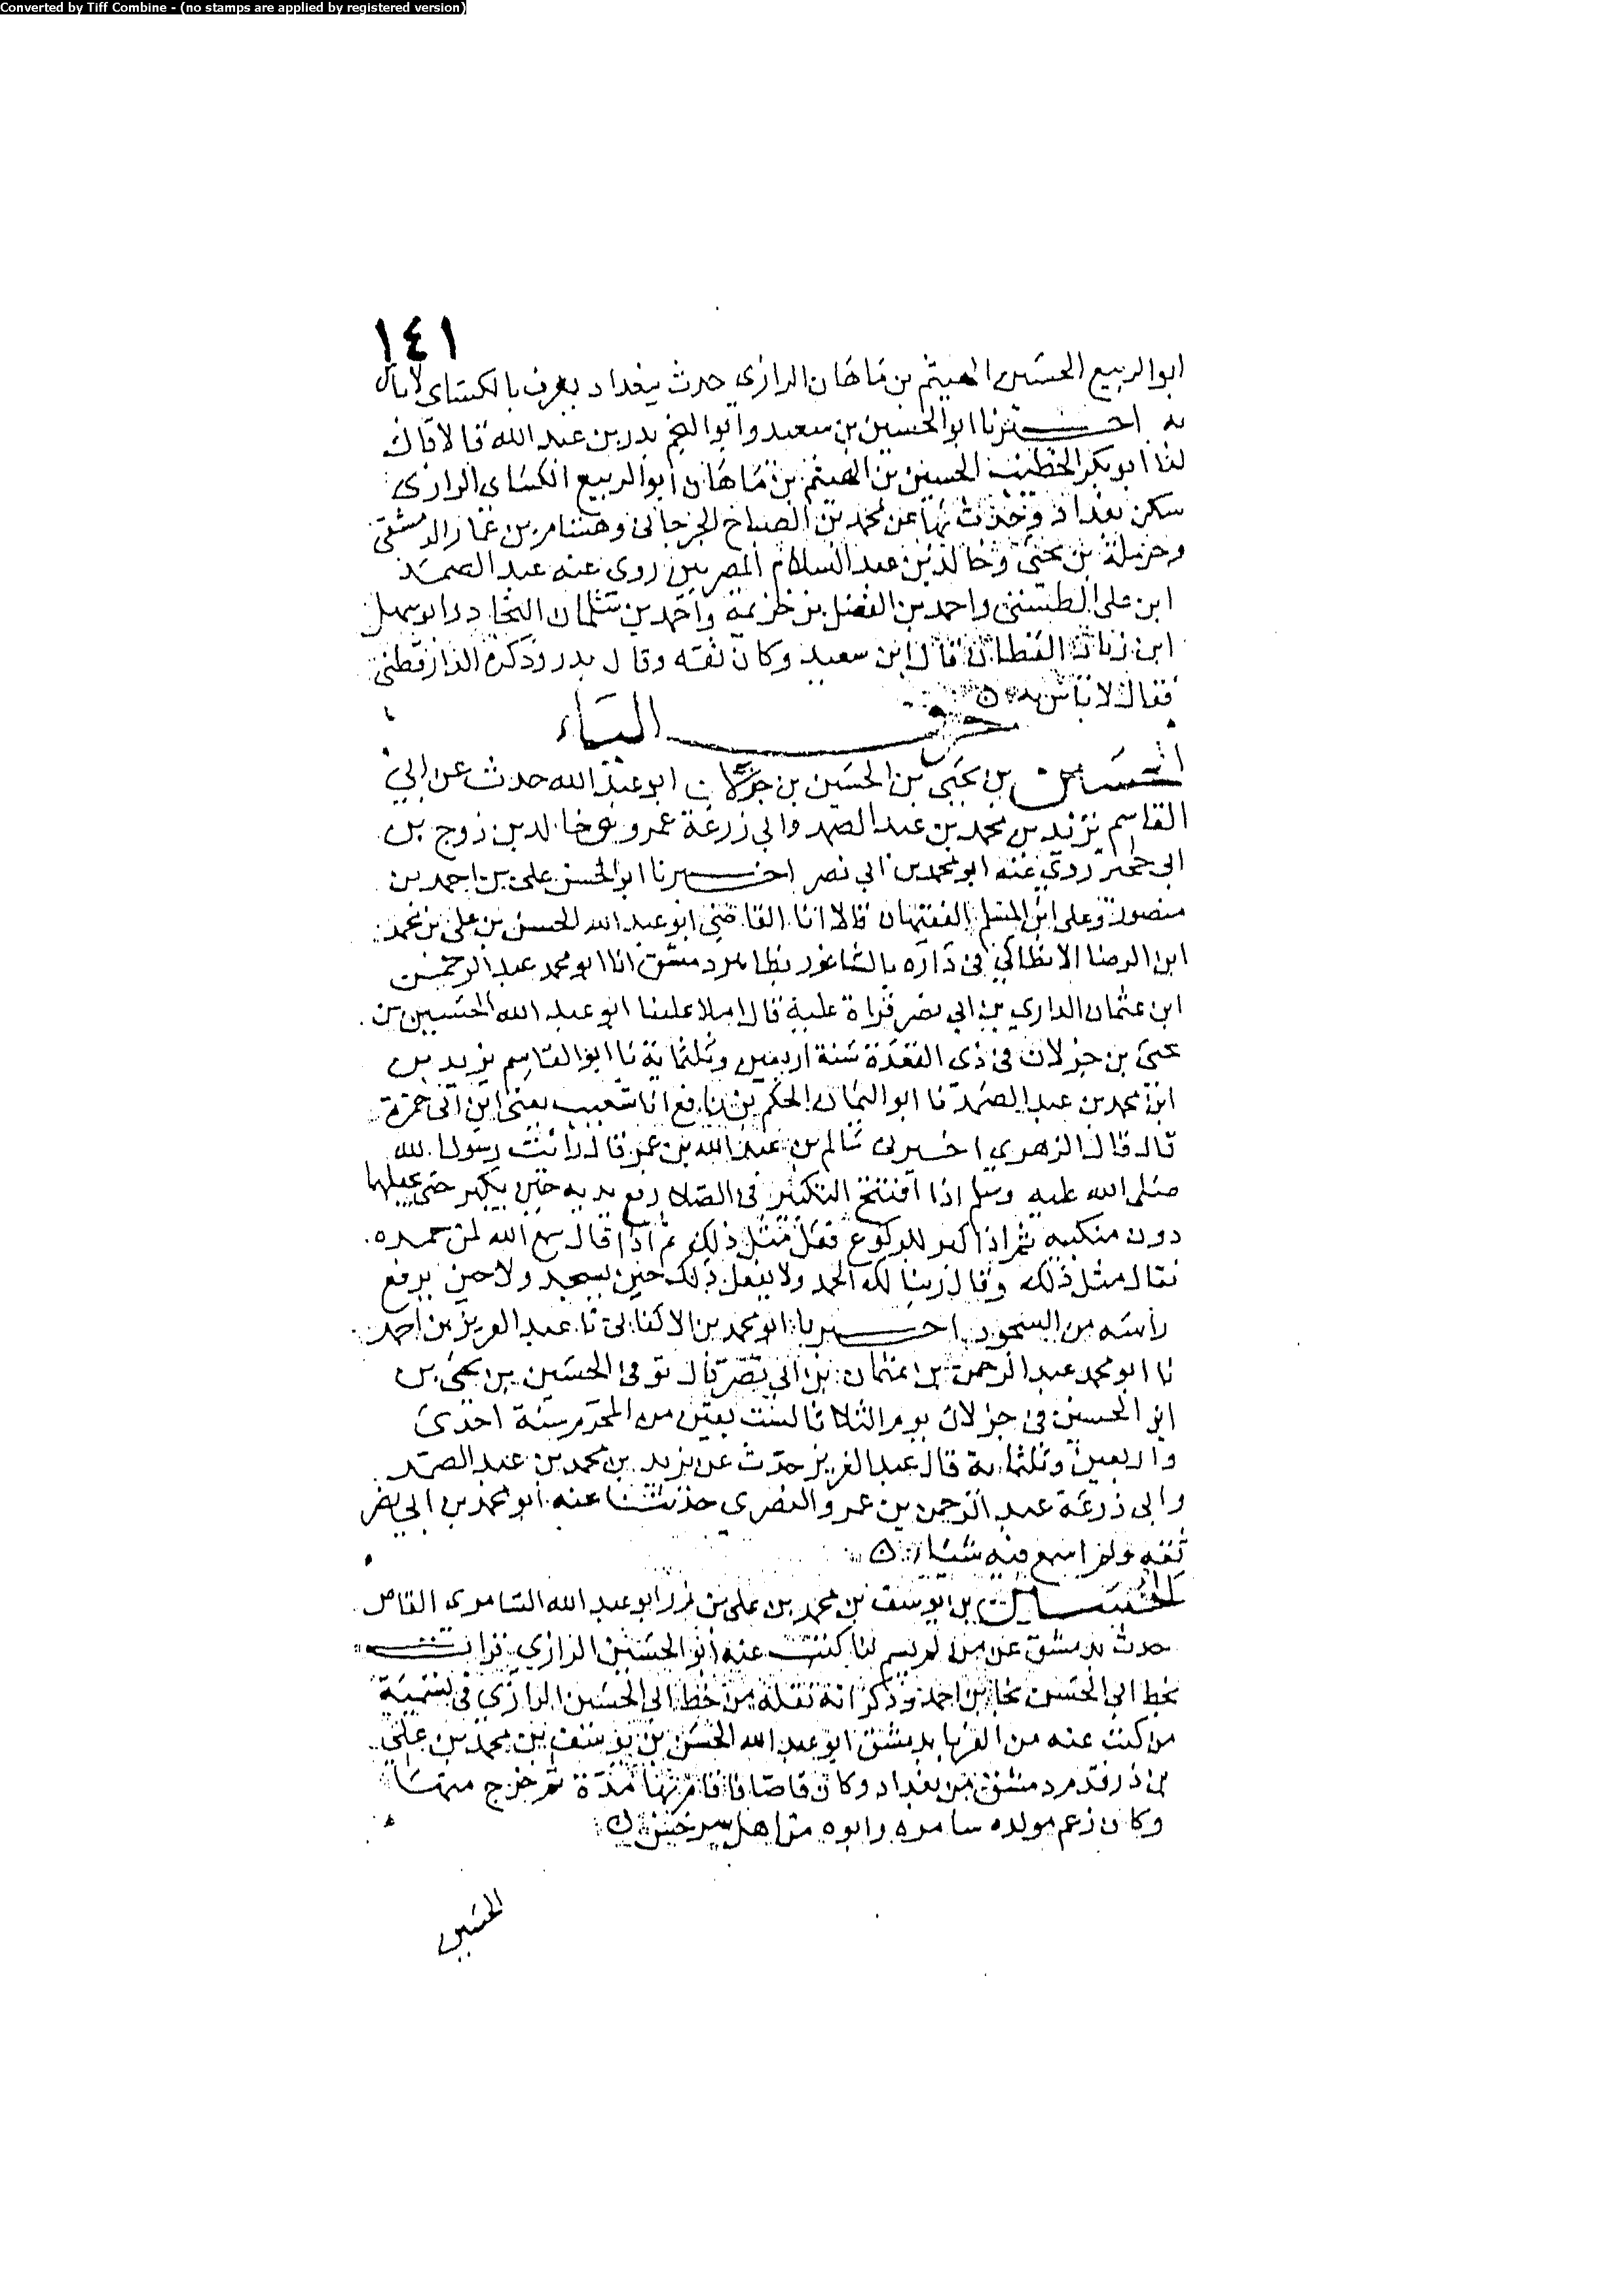 Converted by Tiff Combine - (no stamps are applied by registered version)
١٤١
ابو الربيع الحسين الهيثم بن ماهان الرازي حدث ببغداد يعرف بالكساى لا باس
به اخبرنا ابو الحسين بن سعيد وابو النجم بدر بن عبد الله قالا قال
لنا ابو بكر الخطيب الحسين بن الهيثم بن ماهان ابو الربيع الكساى الرازى
سكن بغداد وحدث بها عن محمد بن الصباح الجرجانى وهشام بن عمار الدمشقى
وحرملة بن يحيى وخالد بن عبد السلام المصريين روى عنه عبد الصمد
ابن على الطستى واحمد بن الفضل بن خزيمة واحمد بن سلمان النجاد وابو سهل
ابن زياد القطان قال ابن سعيد وكان ثقه وقال بدر وذكره الدارقطنى
فقال لا باس به
حرف الياء
الحسين بن يحيى بن الحسين بن جزلان ابو عبد الله حدث عن ابي
القاسم يزيد بن محمد بن عبد الصمد وابي زرعة عمرو
روى عنه ابو محمد بن ابي نصر اخبرنا ابو الحسن على بن احمد بن
منصور وعلى ابن المسلم الفقيهان قالا انا القاضي ابو عبد الله الحسن بن على بن محمد
ابن الرضا الانطاكي فى داره بالشاغور بظاهر دمشق انا ابو محمد عبد الرحمن
ابن عثمان الداري بن ابي نصر قراة عليه قال املا علينا ابو عبد الله الحسين بن
يحيى بن جزلان فى ذى القعدة سنة اربعين وثلثماية نا ابو القاسم يزيد بن
ابن محمد بن عبد الصمد نا ابو اليمان الحكم بن نافع انا شعيب يعنى ابن ابى حمزة
قال قال الزهري اخبرنى سالم بن عبد الله بن عمر قال رايت رسول الله
صلى الله عليه وسلم اذا افتتح التكبير فى الصلاه رفع يديه حين يكبر حتى يجعلهما
دون منكبيه ثم اذا كبر للركوع فعل مثل ذلك ثم اذا قال سمع الله لمن حمده
فقال مثل ذلك وقال ربنا لك الحمد ولا يفعل ذلك حين يسجد ولا حين يرفع
راسه من السجود اخبرنا ابو محمد بن الاكفانى نا عبد العزيز بن احمد
نا ابو محمد عبد الرحمن بن عثمان بن ابي نصر قال توفى الحسين بن يحيى بن
ابو الحسين فى جزلان يوم الثلاثا لست بقين من المحرم سنة احدى
واربعين وثلثماية قال عبد العزيز حدث عن يزيد بن محمد بن عبد الصمد
وابى زرعة عبد الرحمن بن عمرو النصرى حدثنا عنه ابو محمد بن ابي نصر
ثقه ولم اسمع فيه شيئا
الحسين بن يوسف بن محمد بن على بن زر ابو عبد الله السامرى القاص
حدث بدمشق عن من لم يسم لنا كتب عنه ابو الحسين الرازي قرات
بخط ابي الحسن نجا بن احمد وذكر انه نقله من خط ابي الحسين الرازي فى تسمية
من كتب عنه من الغربا بدمشق ابو عبد الله الحسن بن يوسف بن محمد بن على
بن زر قدم دمشق من بغداد وكان قاصا فاقام بها مدة ثم خرج منها
وكان زعم مولده سامره وابوه من اهل سرخس
الحسين